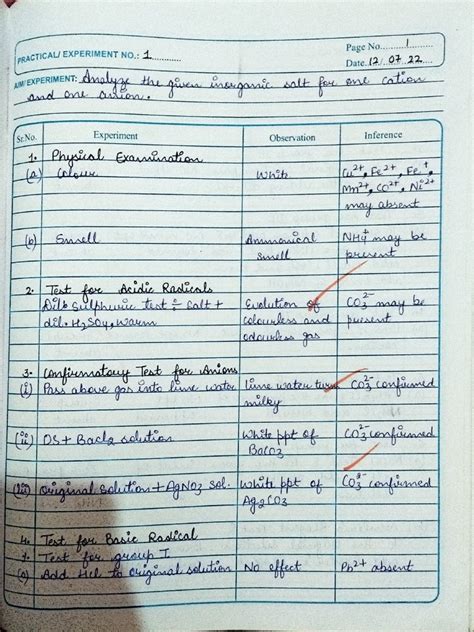 Page No. 1
PRACTICAL/ EXPERIMENT NO.: 1
Date. 12/ 07 22
AIM/EXPERIMENT: Analyze the given inorganic salt for one cation
and one anion.
Sr.No. Experiment Observation Inference
1. Physical Examination
(a) Colour White Cu2+, Fe2+, Fe+,
Mn2+, CO2+, Ni2+
may absent
(b) Smell Ammonical NH4+ may be
smell present
2. Test for Acidic Radicals
Dil. Sulphuric test :- Salt + Evolution of CO3 2- may be
dil. H2SO4, warm colourless and present
odourless gas
3. Confirmatory Test for Anions
(i) Pass above gas into lime water lime water turn CO3 2- confirmed
milky
(ii) OS + Bacl2 solution White ppt of CO3 2- confirmed
BaCO3
(iii) Original solution + AgNO3 sol. White ppt of CO3 2- confirmed
Ag2CO3
4. Test for Basic Radical
1. Test for group I
(a) Add Hcl to original solution No effect Pb2+ absent